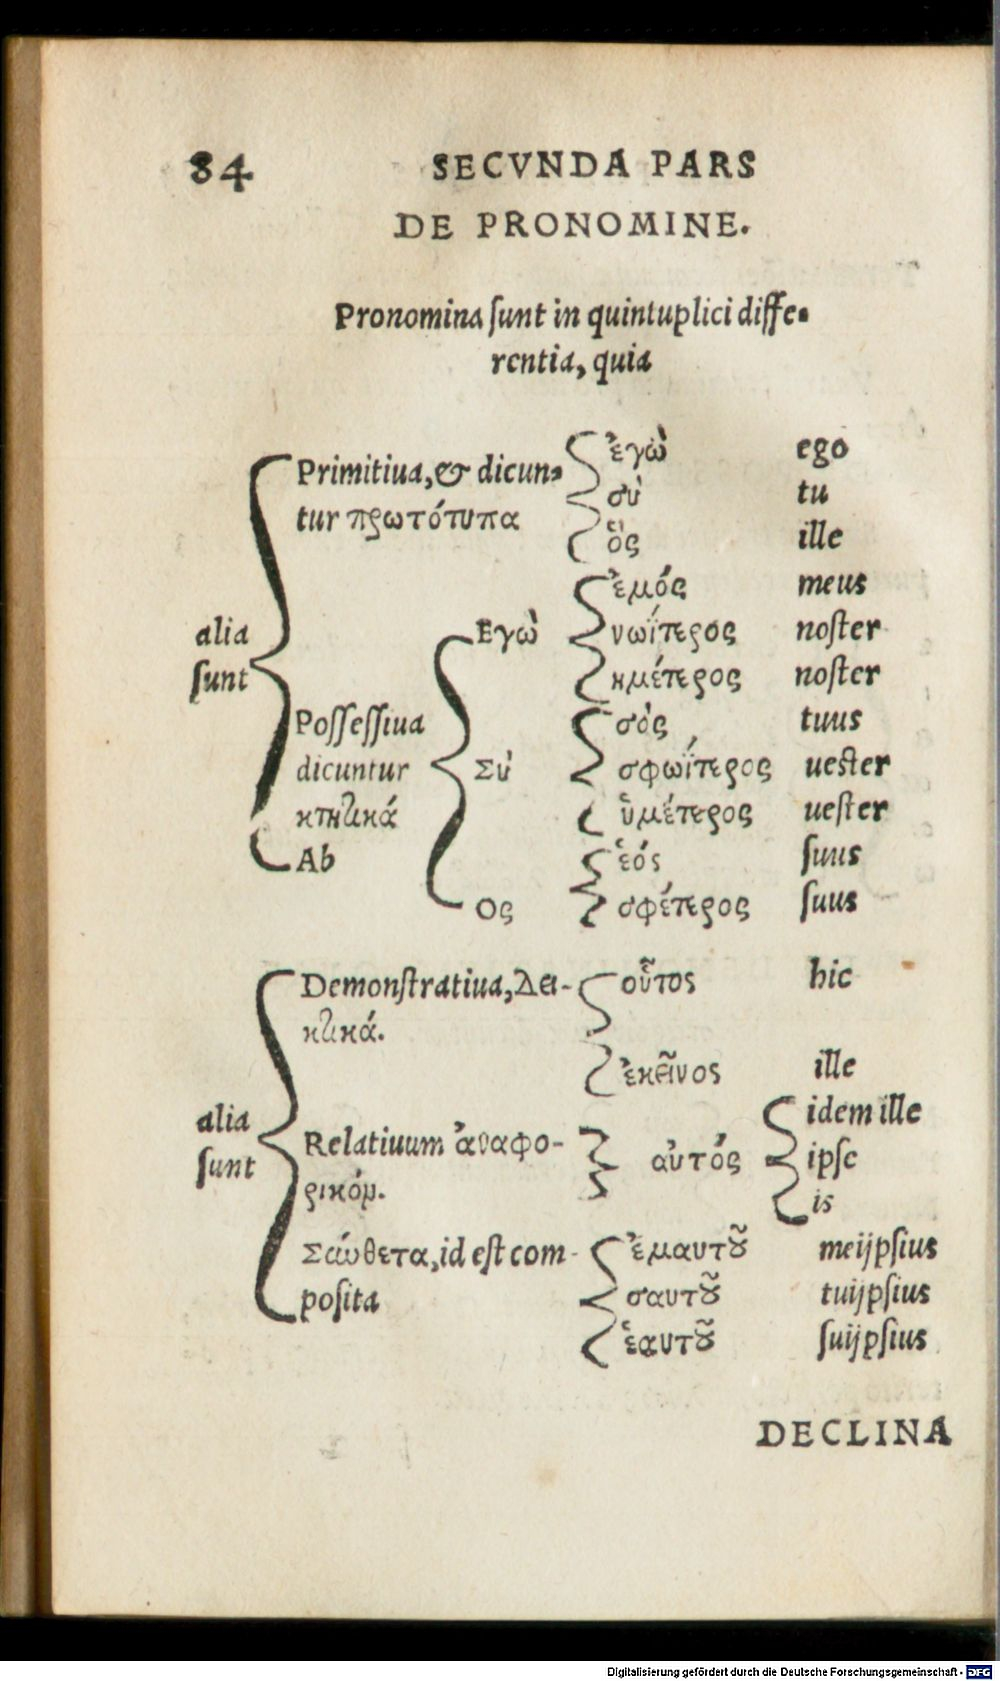 84 SECVNDA PARS
DE PRONOMINE.
Pronomina ſunt in quintuplici diffe-
rentia, quia
alia
ſunt
Primitiua, & dicun-
tur πρωτότυπα
ἐγὼ ego
σὺ tu
ὃς ille
Poſſeſſiua
dicuntur
κτητικά
Ab
Εγὼ
ἐμός meus
νωΐτερος noſter
ημέτερος noſter
Σὺ
σὸς tuus
σφωΐτερος ueſter
ὑμέτερος ueſter
Ος
ἑός ſuus
σφέτερος ſuus
alia
ſunt
Demonſtratiua, Δει-
κτικά.
οὗτος hic
ἐκεῖνος ille
Relatiuum ἀναφο-
ρικόν.
αὐτός
idem ille
ipſe
is
Σύνθετα, id eſt com-
poſita
ἐμαυτοῦ meijpſius
σαυτοῦ tuijpſius
ἑαυτοῦ ſuijpſius
DECLINA
Digitalisierung gefördert durch die Deutsche Forschungsgemeinschaft - DFG